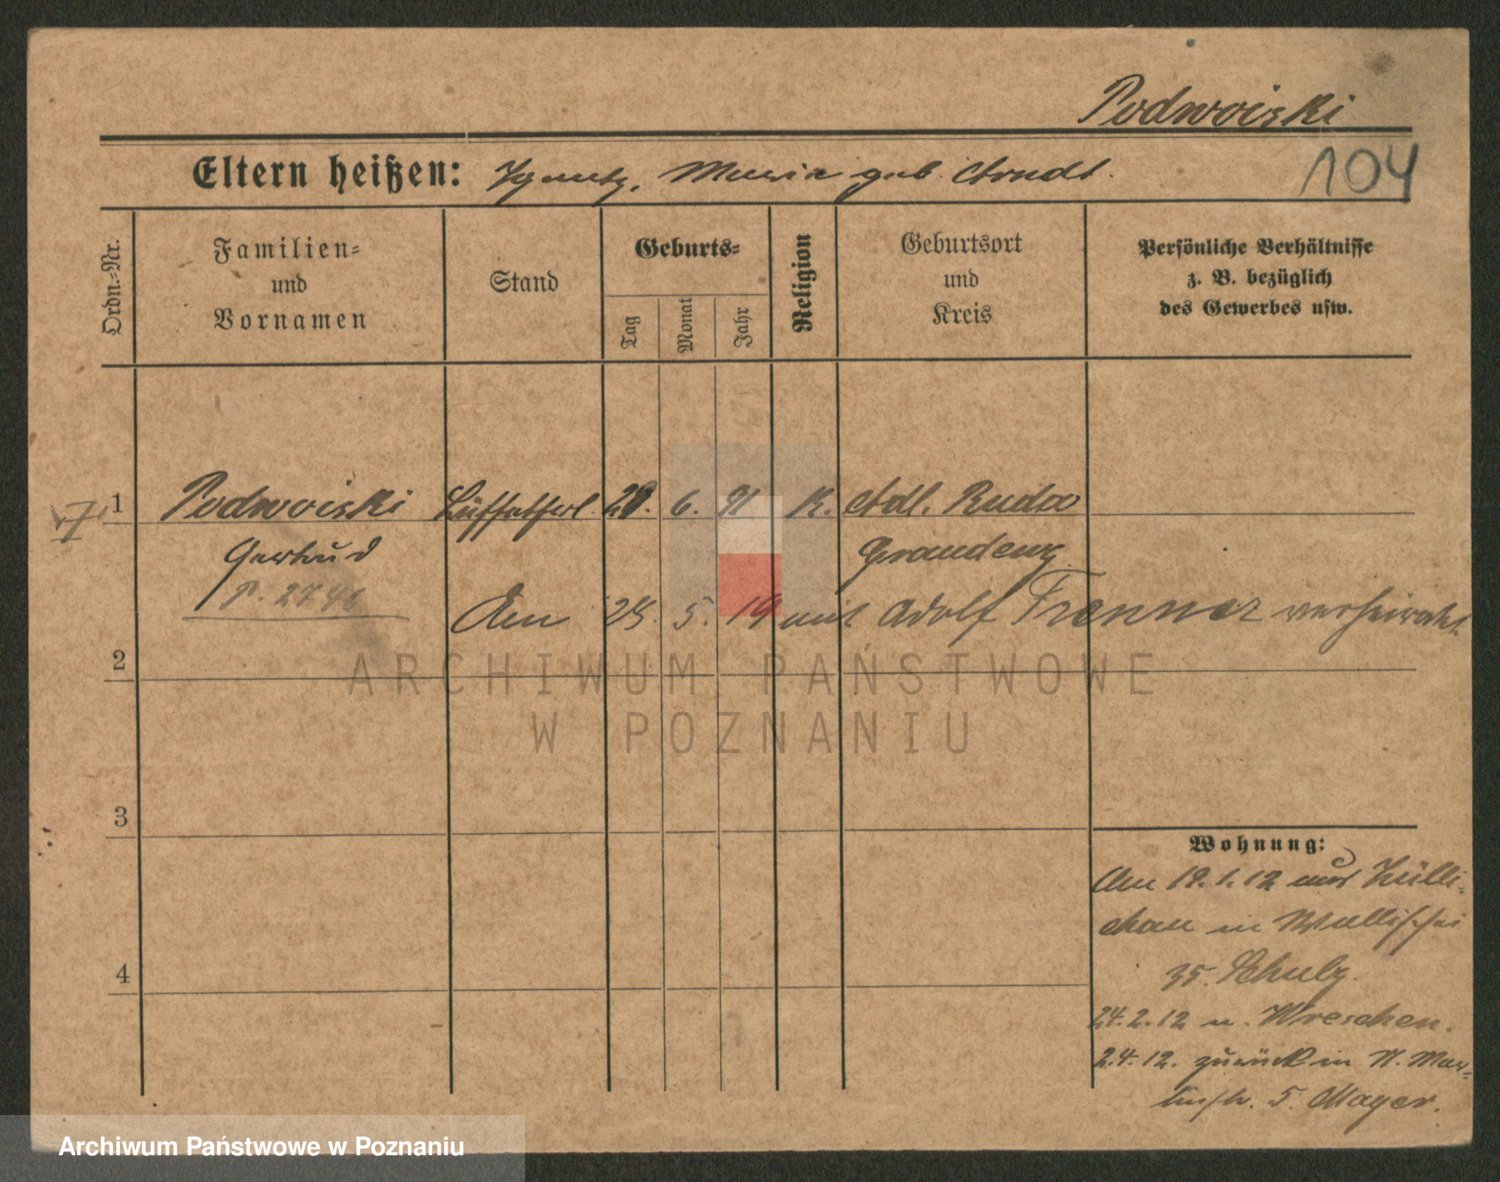 Podwoiski
Eltern heißen: Ignatz, Maria geb. Arndt.
104
Ordn.-Nr.
Familien-
und
Vornamen
Stand
Geburts-
Tag
Monat
Jahr
Religion
Geburtsort
und
Kreis
Persönliche Verhältnisse
z. B. bezüglich
des Gewerbes usw.
1 Podwoiski Büffetfrl. 28. 6. 91 K. Adl. Ruda
Gertrud Graudenz
P. 2746
Am 28. 5. 19 mit Adolf Trenner verheiratet
2
ARCHIWUM PAŃSTWOWE
W POZNANIU
3
4
Wohnung:
Am 19.1.12 aus Zülli-
chau in Wallischei
35. Schulz.
24.2.12 n. Wreschen.
2.4.12. zurück in N. Mar-
tinstr. 5. Mayer.
Archiwum Państwowe w Poznaniu